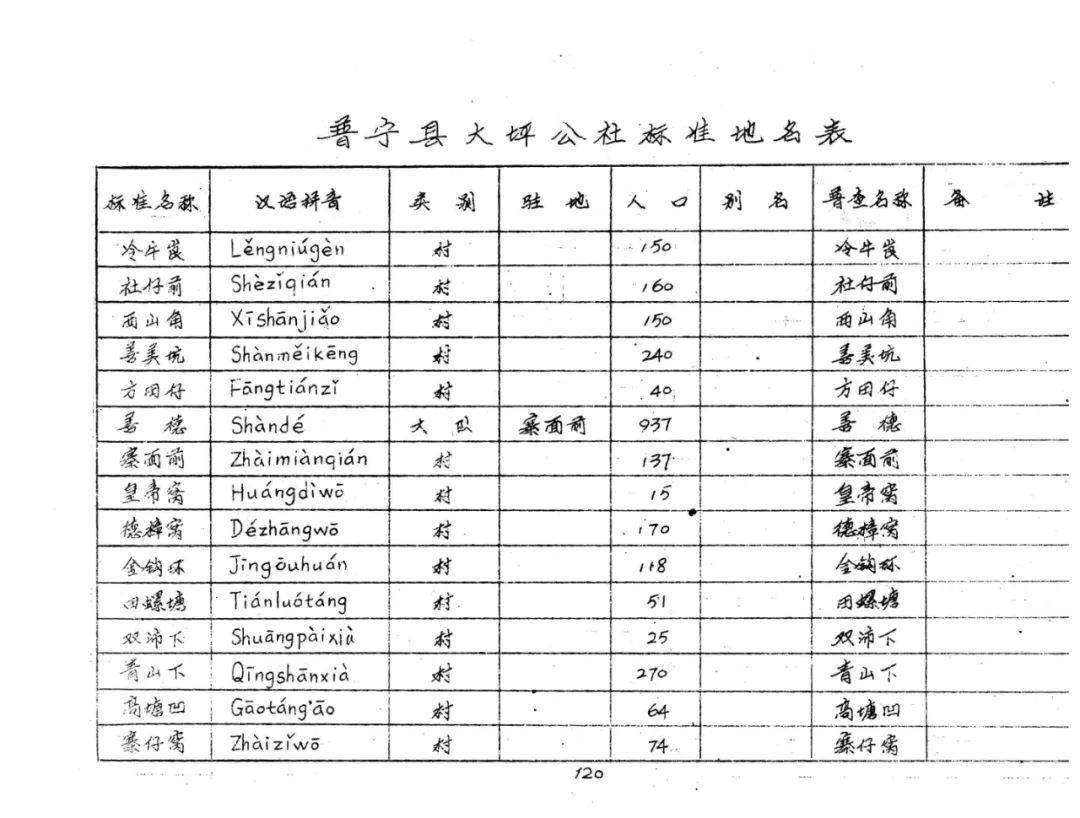 普宁县大坪公社标准地名表
标准名称 汉语拼音 类别 驻地 人口 别名 普查名称 备注
冷牛崀 Lěngniúgèn 村 150 冷牛崀
社仔前 Shèzǐqián 村 160 社仔前
西山角 Xīshānjiǎo 村 150 西山角
善美坑 Shànměikēng 村 240 善美坑
方田仔 Fāngtiánzǐ 村 40 方田仔
善德 Shàndé 大队 寨面前 937 善德
寨面前 Zhàimiànqián 村 137 寨面前
皇帝窝 Huángdìwō 村 15 皇帝窝
德樟窝 Dézhāngwō 村 170 德樟窝
金钩环 Jīngōuhuán 村 118 金钩环
田螺塘 Tiánluótáng 村 51 田螺塘
双沛下 Shuāngpàixià 村 25 双沛下
青山下 Qīngshānxià 村 270 青山下
高塘凹 Gāotáng'āo 村 64 高塘凹
寨仔窝 Zhàizǐwō 村 74 寨仔窝
120